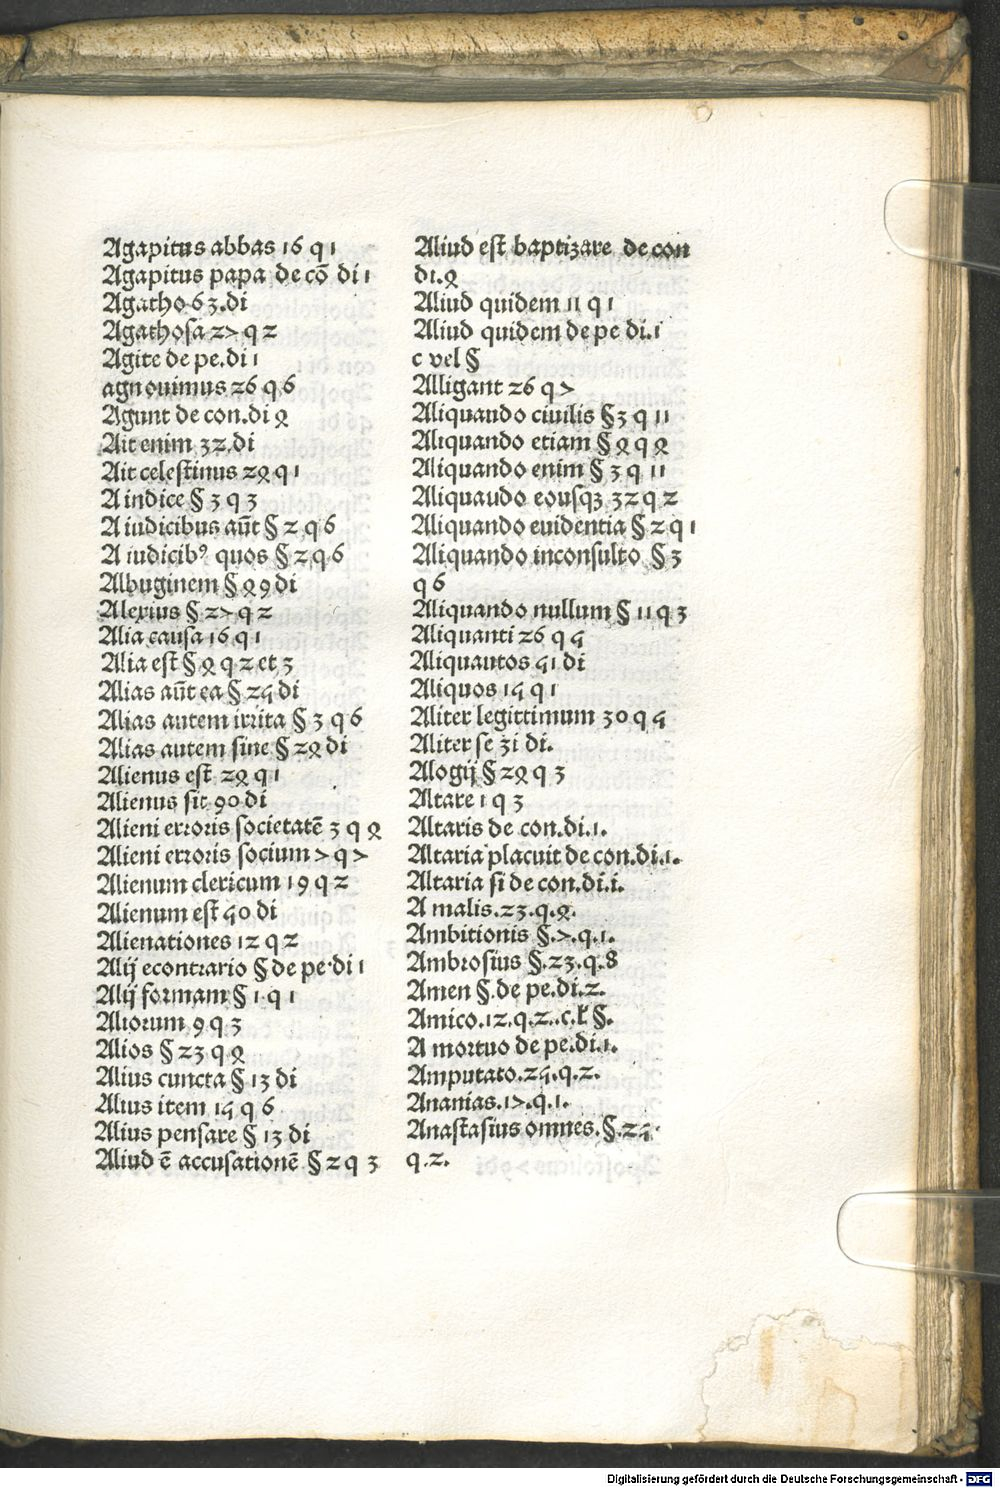 Agapitus abbas 16 q 1
Agapitus papa de cō di 1
Agatho 63.di
Agathosa 27 q 2
Agite de pe.di 1
agnouimus 26 q 6
Agunt de con.di 4
Ait enim 32.di
Ait celestinus 24 q 1
A indice § 3 q 3
A iudicibus aūt § 2 q 6
A iudicibꝰ quos § 2 q 6
Albuginem § 49 di
Alexius § 27 q 2
Alia causa 16 q 1
Alia est § 4 q 2 et 3
Alias aūt ea § 25 di
Alias autem irrita § 3 q 6
Alias autem sine § 24 di
Alienus est 24 q 1
Alienus sit 90 di
Alieni erroris societatē 3 q 4
Alieni erroris socium 7 q 7
Alienum clericum 19 q 2
Alienum est 50 di
Alienationes 12 q 2
Alij econtrario § de pe.di 1
Alij formam § 1 q 1
Aliorum 9 q 3
Alios § 23 q 4
Alius cuncta § 13 di
Alius item 15 q 6
Alius pensare § 13 di
Aliud ē accusationē § 2 q 3
Aliud est baptizare de con
di.4
Aliud quidem 11 q 1
Aliud quidem de pe di.1
c vel §
Alligant 26 q 7
Aliquando ciuilis § 3 q 11
Aliquando etiam § 4 q 4
Aliquando enim § 3 q 11
Aliquaudo eousqꝫ 32 q 2
Aliquando euidentia § 2 q 1
Aliquando inconsulto § 3
q 6
Aliquando nullum § 11 q 3
Aliquanti 26 q 5
Aliquautos 51 di
Aliquos 15 q 1
Aliter legittimum 30 q 5
Aliter se 31 di.
Alogij § 24 q 3
Altare 1 q 3
Altaris de con.di.1.
Altaria placuit de con.di.1.
Altaria si de con.di.i.
A malis.23.q.4.
Ambitionis §.7.q.1.
Ambrosius §.23.q.8
Amen §.de pe.di.2.
Amico.12.q.2..c.ł §.
A mortuo de pe.di.1.
Amputato.25.q.2.
Ananias.17.q.1.
Anastasius omnes.§.25.
q.2.
Digitalisierung gefördert durch die Deutsche Forschungsgemeinschaft - DFG